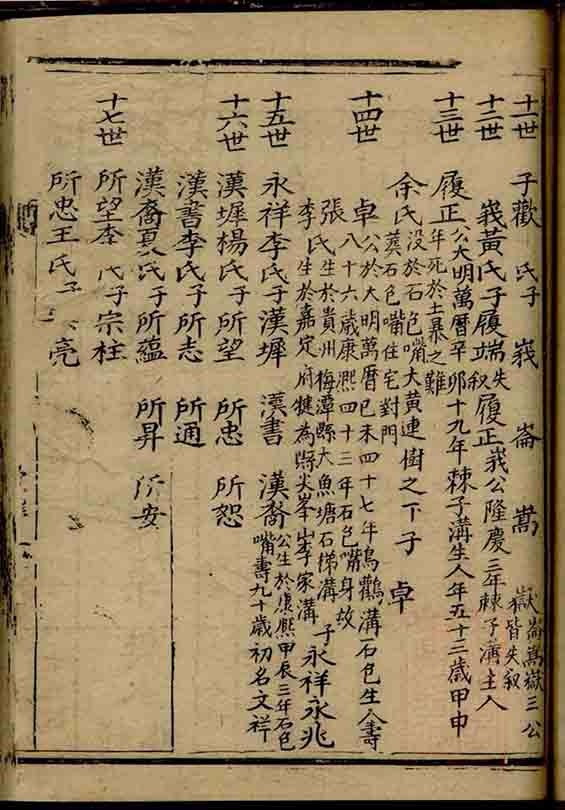 十一世 子歡 氏子 峩 崙 嵩 嶽崙嵩嶽三公
皆失叙
十二世 峩黃氏子履端失叙 履正峩公隆慶三年棘子溝生人
十三世 履正公大明萬曆辛卯十九年棘子溝生人年五十三歲甲申
年死於土暴之難
余氏没於石包嘴大黃連樹之下子 卓
葬石包嘴住宅對門
十四世 卓公於大明萬曆己未四十七年烏鸛溝石包生人壽
八十六歲康熙四十三年石包嘴身故
張氏生於貴州梅潭縣大魚塘石梯溝 子永祥永兆
李氏生於嘉定府犍為縣尖峯山李家溝
十五世 永祥李氏子漢墀 漢書 漢裔公生於康熙甲辰三年石包
嘴壽九十歲初名文祥
十六世 漢墀楊氏子所望 所忠 所恕
漢書李氏子所志 所通
漢裔夏氏子所蘊 所昇 所安
十七世 所望李氏子宗柱
所忠王氏子 亮